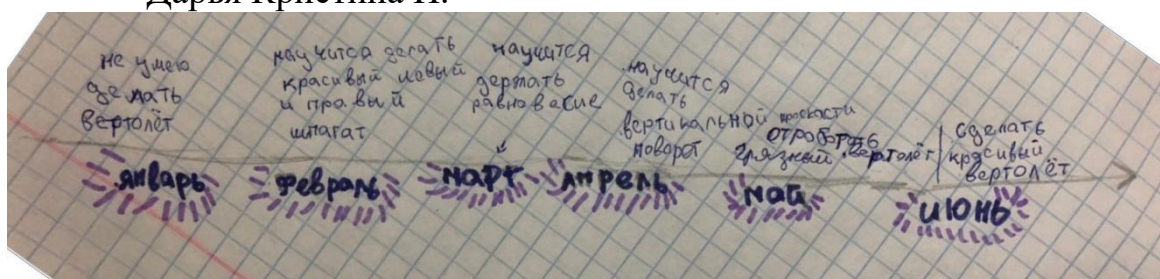 Дарья Кристина П.
не умею
делать
вертолёт
научится делать
красивый левый
и правый
шпагат
научится
держать
равновесие
научится
делать
вертикальной проскасти
поворот
отробототь
грязный вертолёт
сделать
красивый
вертолёт
январь
февраль
март
апрель
май
июнь